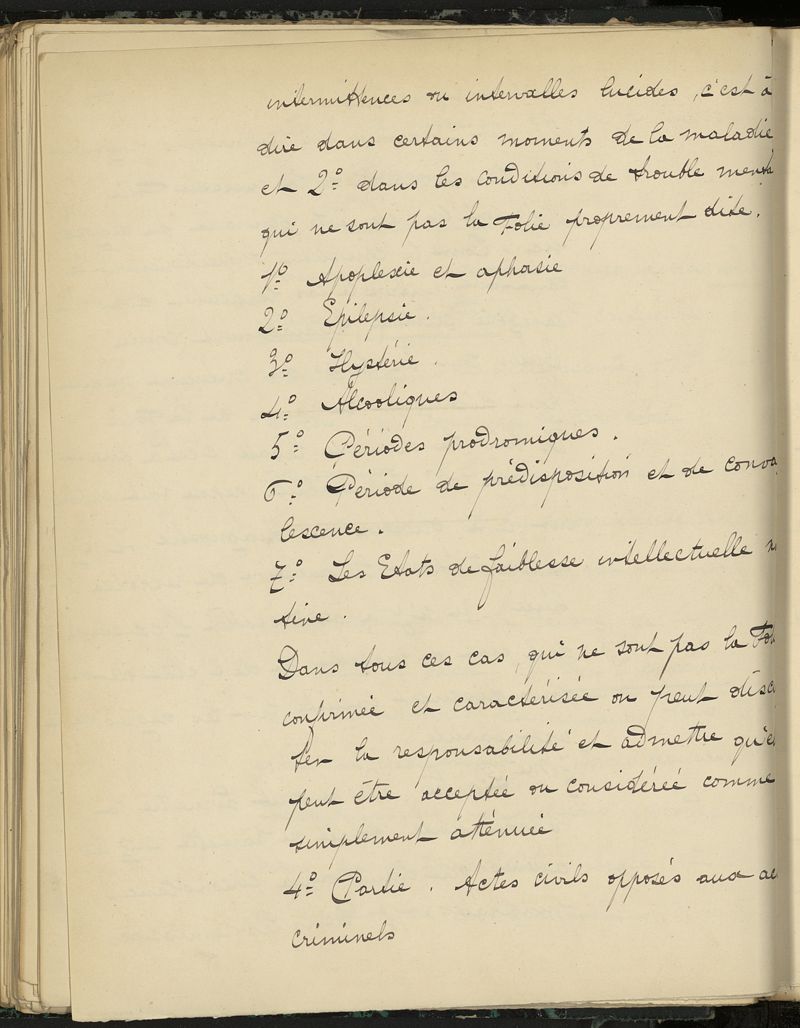 intermittences ou intervalles lucides, c'est à
dire dans certains moments de la maladie
et 2º dans les conditions de trouble menta
qui ne sont pas la Folie proprement dite.
1º Apoplexie et aphasie
2º Epilepsie.
3º Hystérie.
4º Alcooliques
5º Périodes prodromiques.
6º Période de prédisposition et de conva
lescence.
7º Les Etats de faiblesse intellectuelle n
tive.
Dans tous ces cas, qui ne sont pas la Fol
confirmée et caractérisée on peut discu
ter la responsabilité et admettre qu'e
peut être acceptée ou considérée comme
simplement atténuée
4º Partie. Actes civils opposés aux ac
criminels